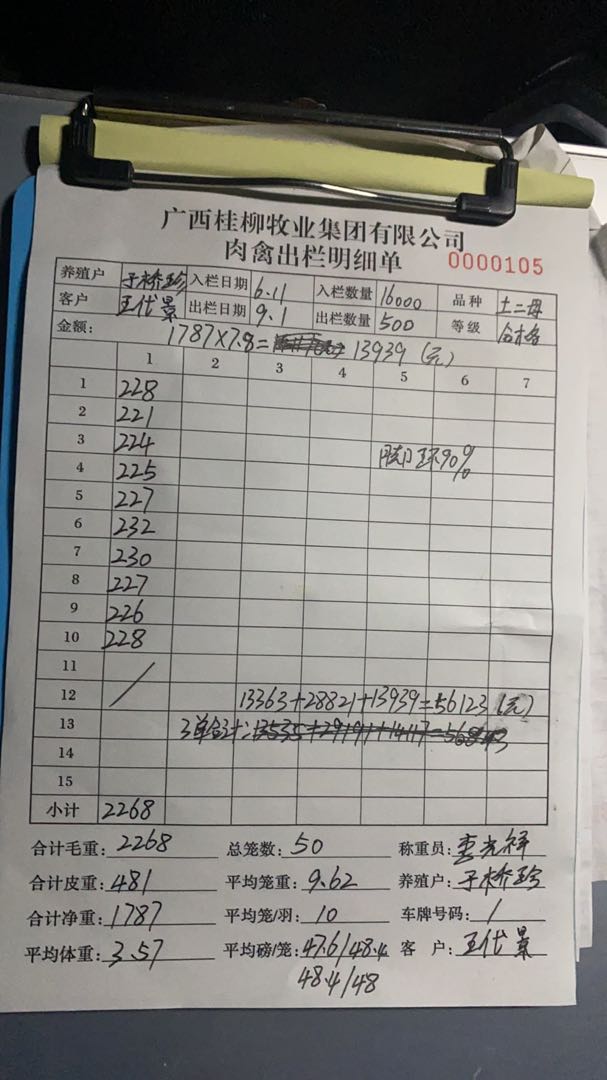 广西桂柳牧业集团有限公司
肉禽出栏明细单 0000105
养殖户 于桥珍 入栏日期 6.11 入栏数量 16000 品种 土二母
客户 王代景 出栏日期 9.1 出栏数量 500 等级 合格
金额: 1787×7.8= 13939 (元)
1 2 3 4 5 6 7
1 228
2 221
3 224
4 225 脚环90%
5 227
6 232
7 230
8 227
9 226
10 228
11
12 13363+28821+13939=56123 (元)
13 3单合计: 13535+29191+14117=56843
14
15
小计 2268
合计毛重: 2268 总笼数: 50 称重员: 光祥
合计皮重: 481 平均笼重: 9.62 养殖户: 于桥珍
合计净重: 1787 平均笼/羽: 10 车牌号码: /
平均体重: 3.57 平均磅/笼: 47.6/48.4 客 户: 王代景
48.4/48